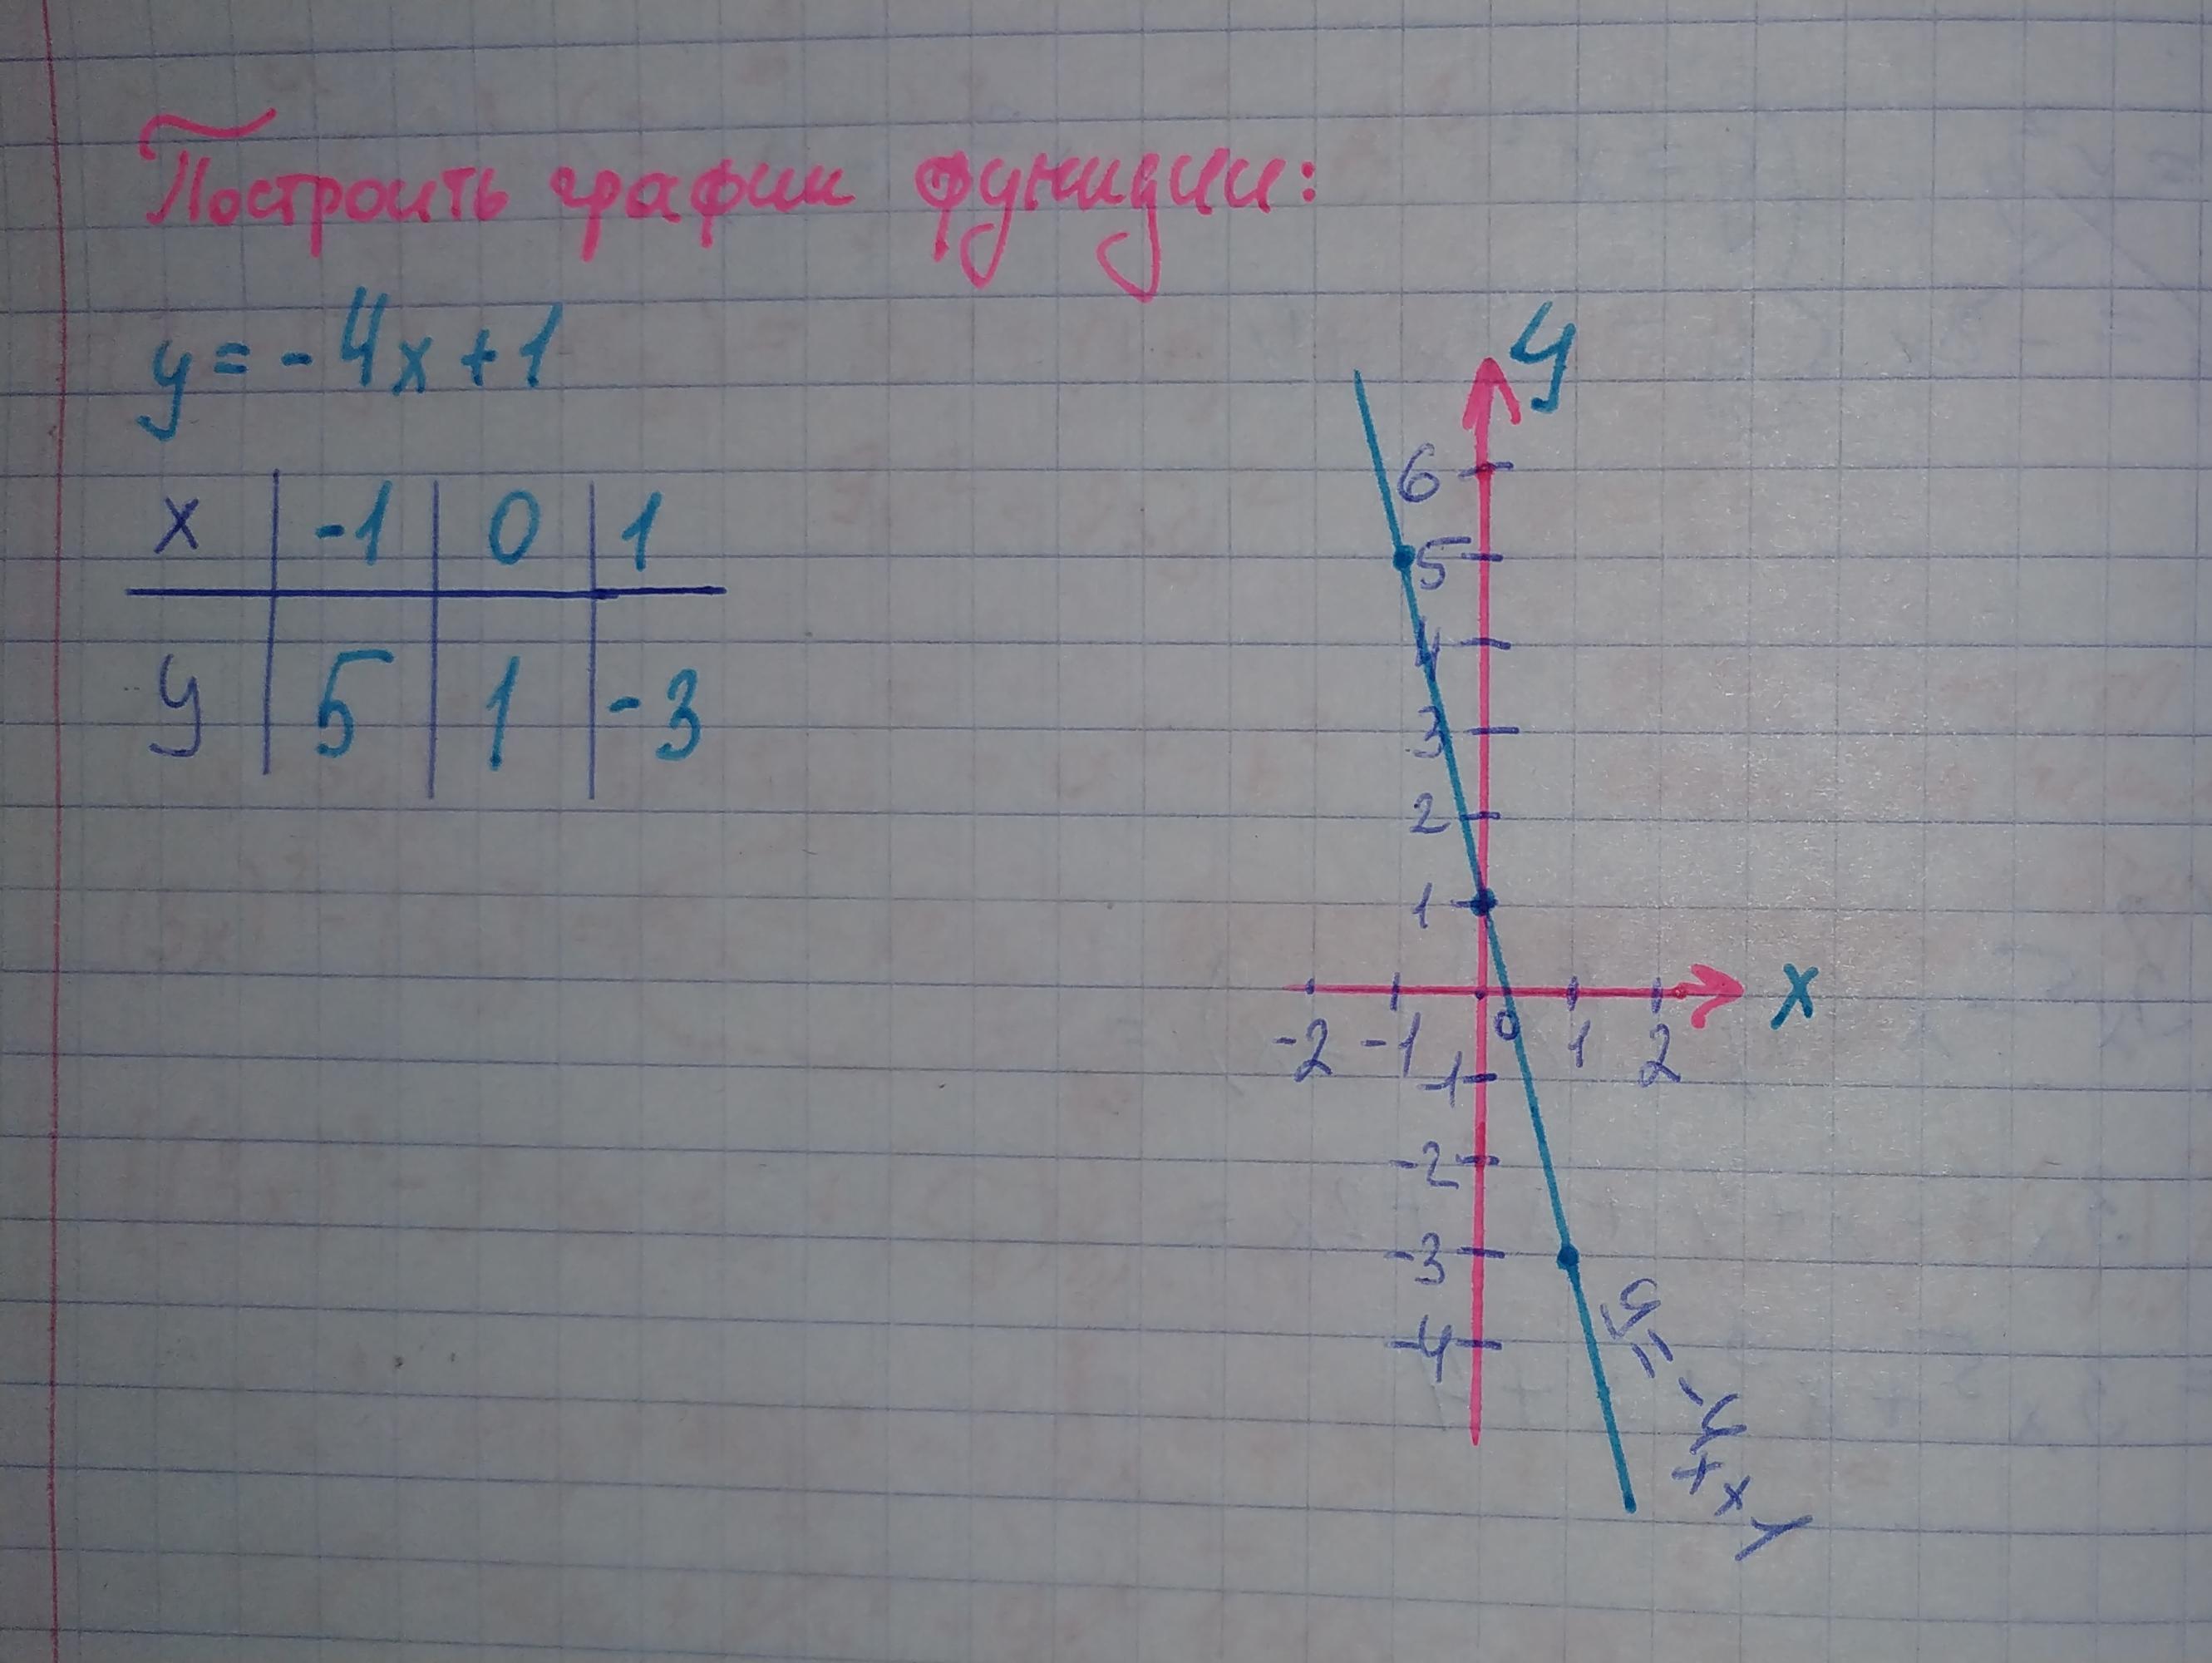 Построить график функции:
y = -4x + 1
x | -1 | 0 | 1
y | 5 | 1 | -3
y
6
5
4
3
2
1
x
-2 -1 0 1 2
-1
-2
-3
-4